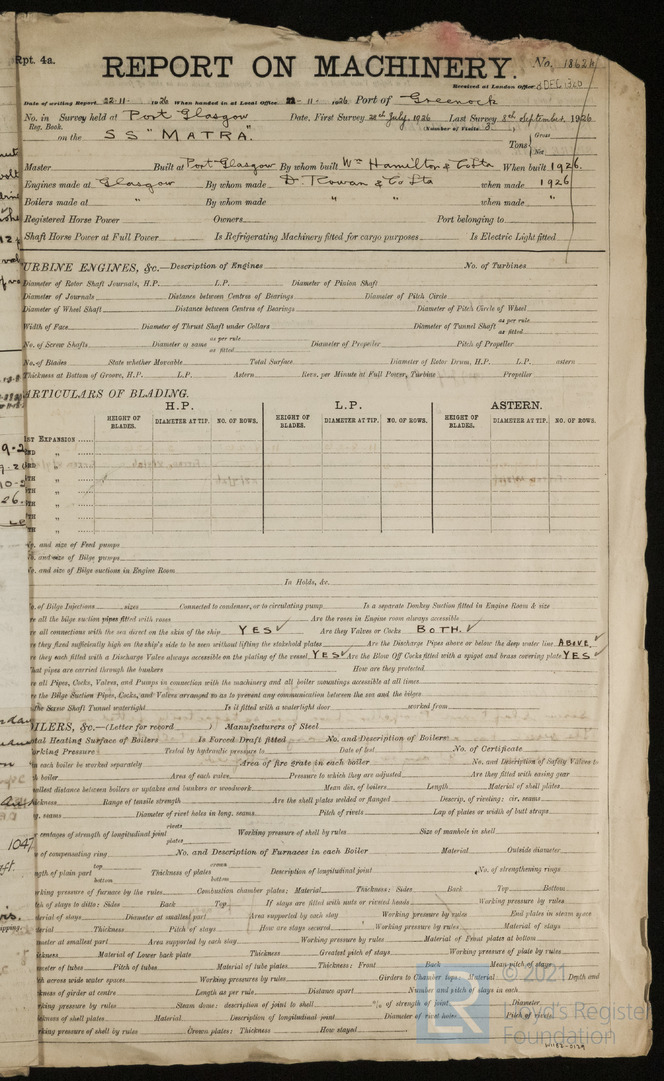 Rpt. 4a.
REPORT ON MACHINERY.
No. 18621
Received at London Office 8 DEC 1926
Date of writing Report 22.11. 1926 When handed in at Local Office 22.11. 1926 Port of Greenock
No. in Reg. Book. Survey held at Port Glasgow Date, First Survey 28th July, 1926 Last Survey 8th September 1926
(Number of Visits 3)
on the SS "MATRA." Tons Gross Net
Master Built at Port Glasgow By whom built Wm Hamilton & Co Ltd When built 1926.
Engines made at Glasgow By whom made D. Rowan & Co Ltd when made 1926
Boilers made at " By whom made " " when made "
Registered Horse Power Owners Port belonging to
Shaft Horse Power at Full Power Is Refrigerating Machinery fitted for cargo purposes Is Electric Light fitted
URBINE ENGINES, &c.—Description of Engines No. of Turbines
Diameter of Rotor Shaft Journals, H.P. L.P. Diameter of Pinion Shaft
Diameter of Journals Distance between Centres of Bearings Diameter of Pitch Circle
Diameter of Wheel Shaft Distance between Centres of Bearings Diameter of Pitch Circle of Wheel
Width of Face Diameter of Thrust Shaft under Collars Diameter of Tunnel Shaft as per rule as fitted
No. of Screw Shafts Diameter of same as per rule as fitted Diameter of Propeller Pitch of Propeller
No. of Blades State whether Moveable Total Surface Diameter of Rotor Drum, H.P. L.P. astern
Thickness at Bottom of Groove, H.P. L.P. Astern Revs. per Minute at Full Power, Turbine Propeller
ARTICULARS OF BLADING.
H.P. L.P. ASTERN.
HEIGHT OF BLADES. DIAMETER AT TIP. NO. OF ROWS. HEIGHT OF BLADES. DIAMETER AT TIP. NO. OF ROWS. HEIGHT OF BLADES. DIAMETER AT TIP. NO. OF ROWS.
1ST EXPANSION
ND "
RD "
TH "
TH "
TH "
TH "
TH "
No. and size of Feed pumps
No. and size of Bilge pumps
No. and size of Bilge suctions in Engine Room
In Holds, &c.
No. of Bilge Injections sizes Connected to condenser, or to circulating pump Is a separate Donkey Suction fitted in Engine Room & size
re all the bilge suction pipes fitted with roses Are the roses in Engine room always accessible
re all connections with the sea direct on the skin of the ship YES ✓ Are they Valves or Cocks BOTH. ✓
re they fixed sufficiently high on the ship's side to be seen without lifting the stokehold plates Are the Discharge Pipes above or below the deep water line ABOVE ✓
re they each fitted with a Discharge Valve always accessible on the plating of the vessel YES ✓ Are the Blow Off Cocks fitted with a spigot and brass covering plate YES ✓
hat pipes are carried through the bunkers How are they protected
re all Pipes, Cocks, Valves, and Pumps in connection with the machinery and all boiler mountings accessible at all times
re the Bilge Suction Pipes, Cocks, and Valves arranged so as to prevent any communication between the sea and the bilges
the Screw Shaft Tunnel watertight Is it fitted with a watertight door worked from
OILERS, &c.—(Letter for record ) Manufacturers of Steel
otal Heating Surface of Boilers Is Forced Draft fitted No. and Description of Boilers
orking Pressure Tested by hydraulic pressure to Date of test No. of Certificate
n each boiler be worked separately Area of fire grate in each boiler No. and Description of Safety Valves to
h boiler Area of each valve Pressure to which they are adjusted Are they fitted with easing gear
mallest distance between boilers or uptakes and bunkers or woodwork Mean dia. of boilers Length Material of shell plates
hickness Range of tensile strength Are the shell plates welded or flanged Descrip. of riveting: cir. seams
ng. seams Diameter of rivet holes in long. seams Pitch of rivets Lap of plates or width of butt straps
r centages of strength of longitudinal joint rivets plates Working pressure of shell by rules Size of manhole in shell
of compensating ring No. and Description of Furnaces in each Boiler Material Outside diameter
ngth of plain part top bottom Thickness of plates crown bottom Description of longitudinal joint No. of strengthening rings
orking pressure of furnace by the rules Combustion chamber plates: Material Thickness: Sides Back Top Bottom
tch of stays to ditto: Sides Back Top If stays are fitted with nuts or riveted heads Working pressure by rules
aterial of stays Diameter at smallest part Area supported by each stay Working pressure by rules End plates in steam space
aterial Thickness Pitch of stays How are stays secured Working pressure by rules Material of stays
iameter at smallest part Area supported by each stay Working pressure by rules Material of Front plates at bottom
hickness Material of Lower back plate Thickness Greatest pitch of stays Working pressure of plate by rules
iameter of tubes Pitch of tubes Material of tube plates Thickness: Front Back Mean pitch of stays
tch across wide water spaces Working pressures by rules Girders to Chamber tops: Material Depth and
ickness of girder at centre Length as per rule Distance apart Number and pitch of stays in each
orking pressure by rules Steam dome: description of joint to shell % of strength of joint Diameter
ickness of shell plates Material Description of longitudinal joint Diameter of rivet holes Pitch of rivets
orking pressure of shell by rules Crown plates: Thickness How stayed
© 2021
Lloyd's Register
Foundation
W1182-0129